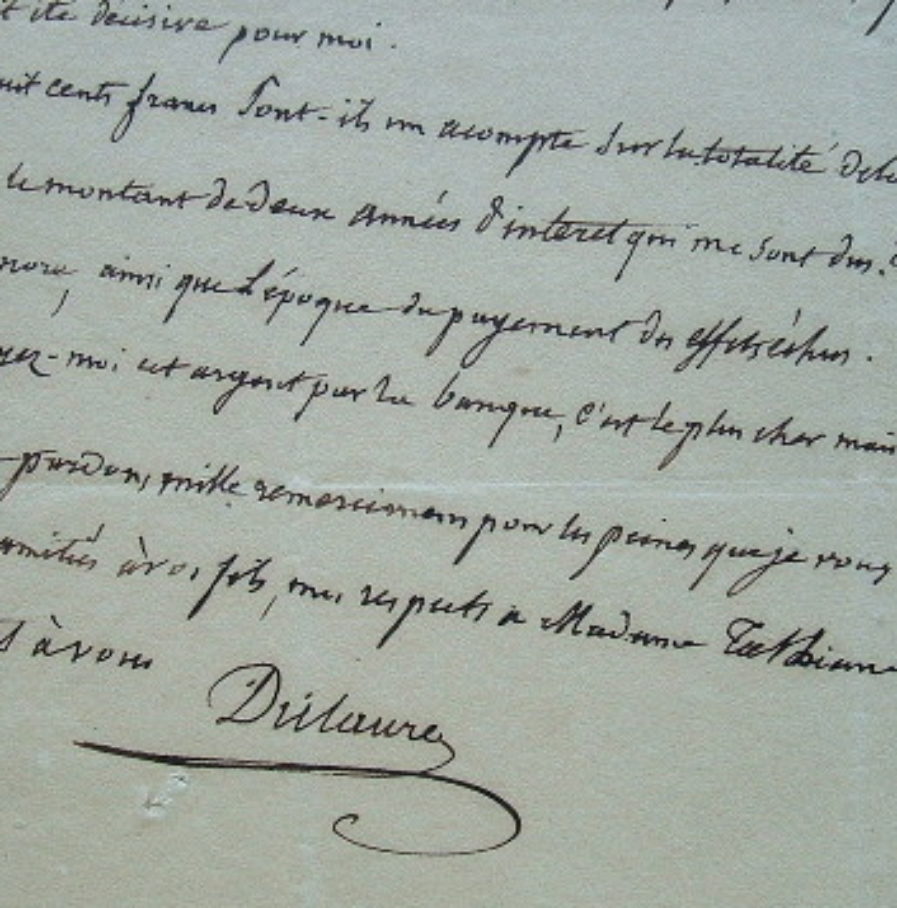 été décisive pour moi.
cents francs sont-ils un acompte sur la totalité
le montant de deux années d'interet qui me sont dus.
ainsi que l'époque du payement des effets échus.
-moi cet argent par la banque, c'est le plus cher mais
pardons, mille remerciemens pour les peines que je vous
amitiés à vos fils, mes respects a Madame
à vous
Dulaure